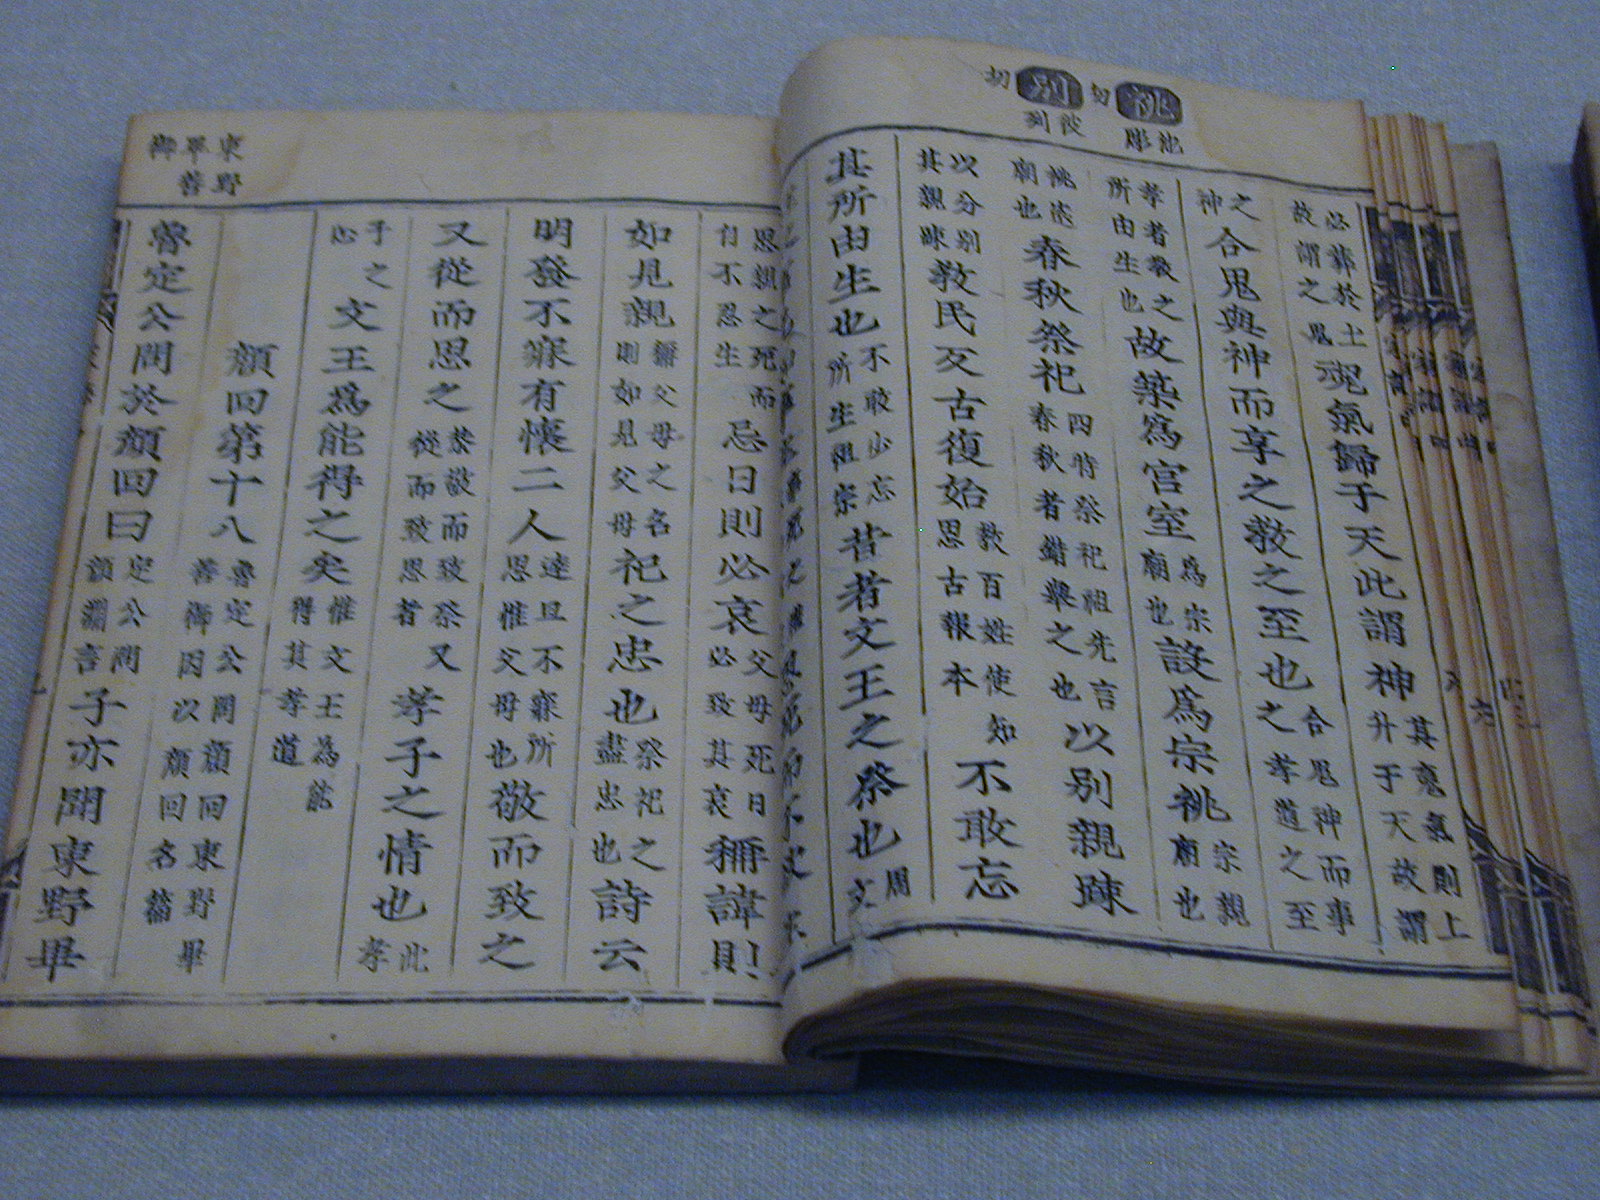 祧他彫切
別彼列切
必葬於土故謂之鬼魂氣歸于天此謂神其魂氣則上升于天故謂
之神合鬼與神而享之教之至也合鬼神而事之孝道之至
孝者教之所由生也故築爲宮室爲宗廟也設爲宗祧宗親廟也
祧遠廟也春秋祭祀四時祭祀祖先言春秋者錯舉之也以別親踈
以分別其親踈教民反古復始教百姓使知思古報本不敢忘
其所由生也不敢必忘所生祖宗昔者文王之祭也周文
思親之死而不忍生忌日則必哀父母死日必致其哀稱諱則
如見親稱父母之名則如見父母祀之忠也祭祀之盡忠也詩云
明發不寐有懷二人達旦不寐所思惟父母也敬而致之
又從而思之祭敬而致祭又從而致思者孝子之情也此孝
子之心文王爲能得之矣惟文王為能得其孝道
顏回第十八魯定公問顏回東野畢善御因以顏回名篇
東野畢善御
魯定公問於顏回曰定公問顏淵言子亦聞東野畢